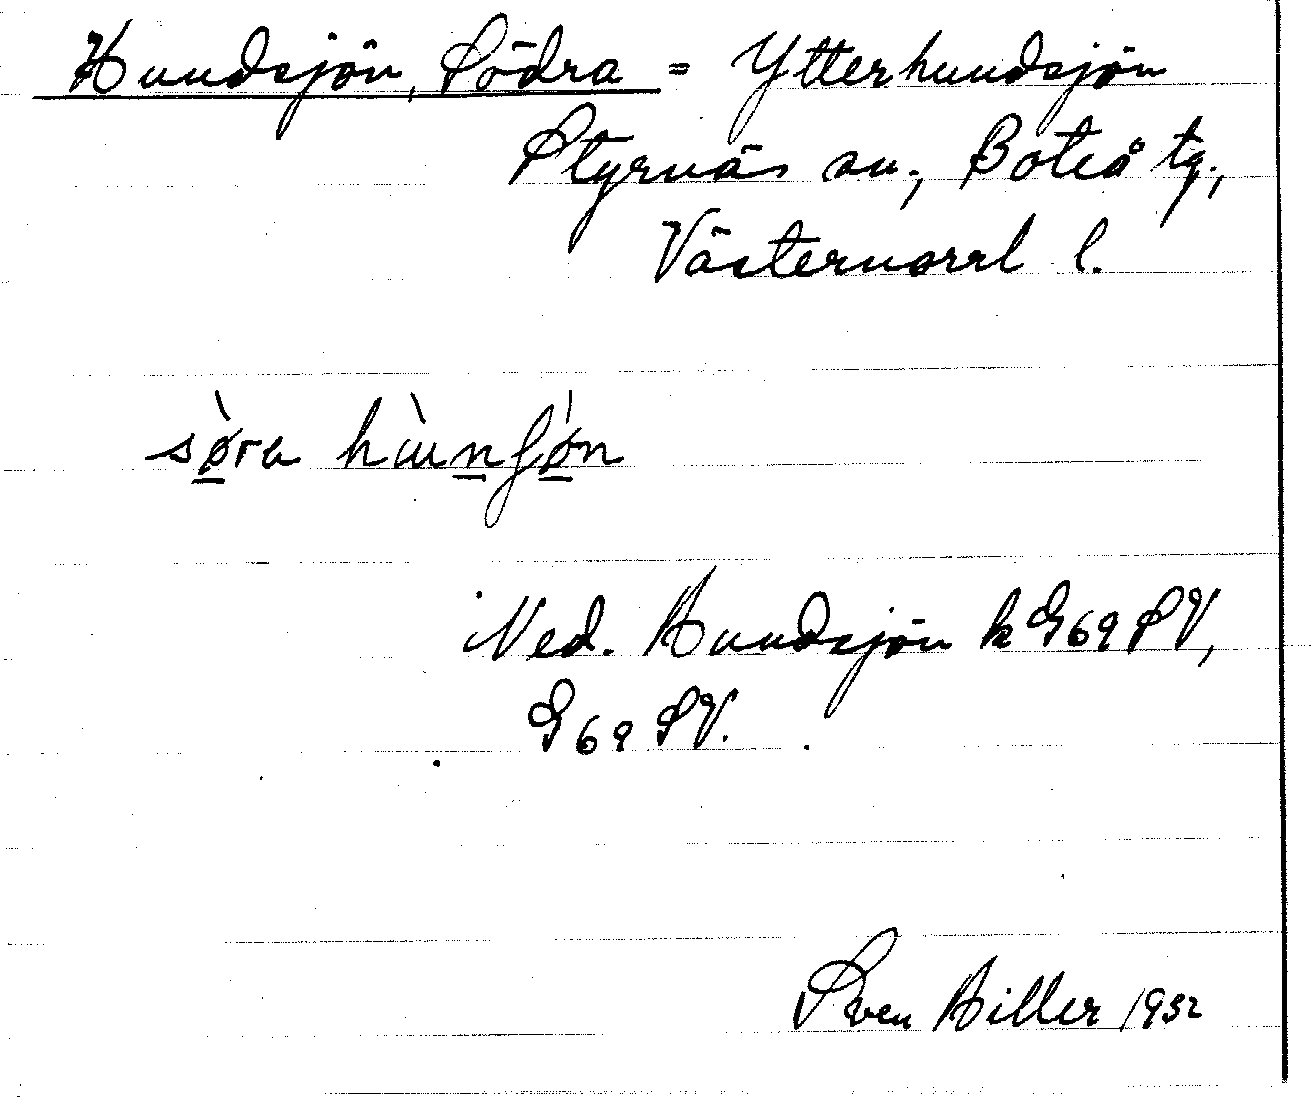 Hundsjön, Södra = Ytterhundsjön
Styrnäs sn., Boteå tg.,
Västernorrl l.
sø̀ra hùnʃǿn
Ned. Hundsjön k G69SV,
G69SV.
Sven Hiller 1932